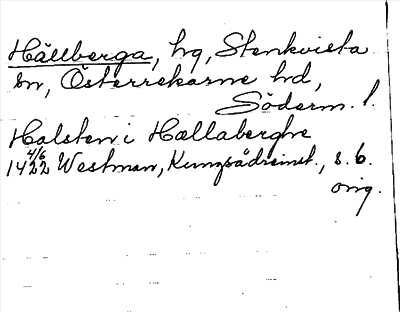 Hällberga, hg, Stenkvista
sn, Österrekarne hd,
Söderm. l.
Halsten i Hællaberghe
4/6
1422 Westman, Kungsådreinst., s. 6.
orig.